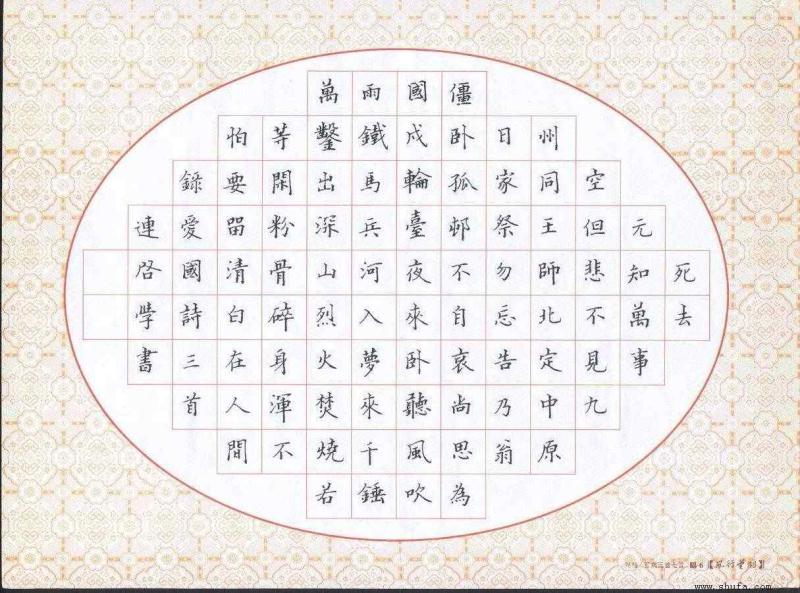 死去
元知萬事
空但悲不見九
州同王師北定中原
日家祭勿忘告乃翁
僵卧孤邨不自哀尚思為
國戍輪臺夜來卧聽風吹
雨鐵馬兵河入夢來千錘
萬鑿出深山烈火焚燒若
等閑粉骨碎身渾不
怕要留清白在人間
錄愛國詩三首
連启學書
www.shufa.com